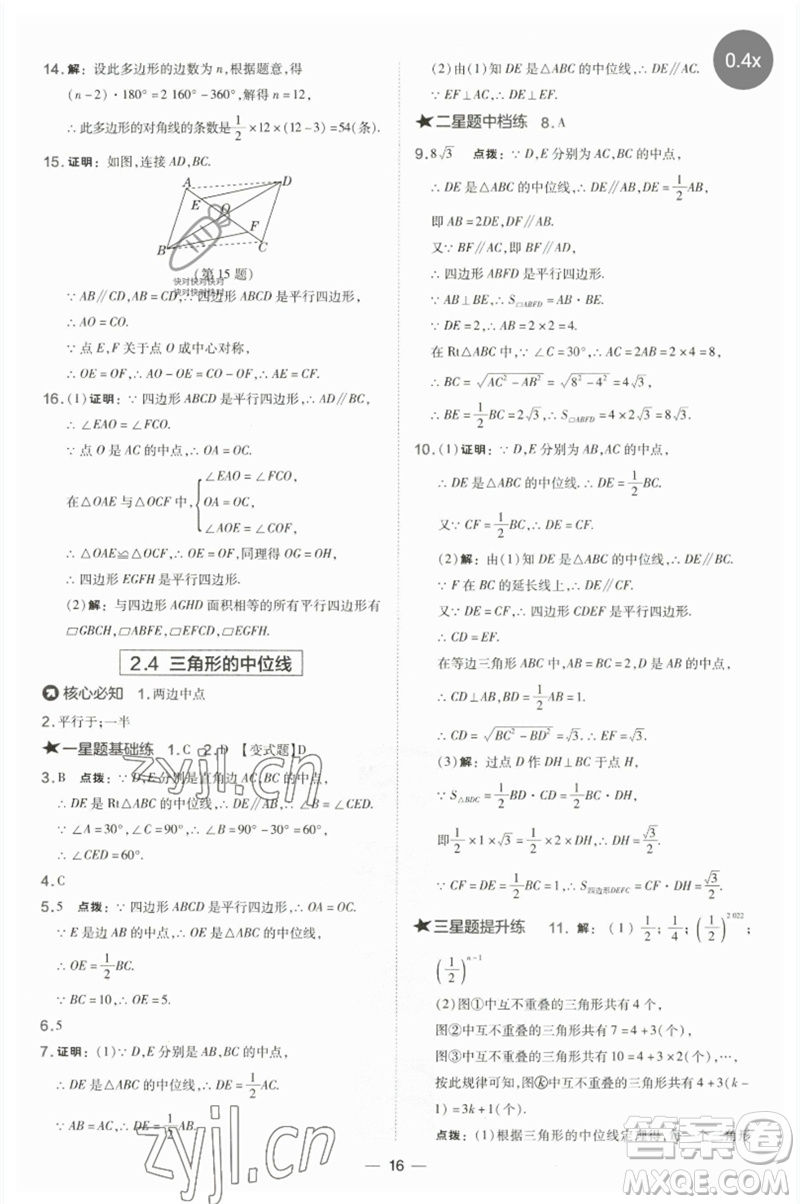 14.解:设此多边形的边数为 n,根据题意,得
(n-2)·180°=2 160°-360°,解得 n=12,
∴此多边形的对角线的条数是1/2×12×(12-3)=54(条).
15.证明:如图,连接 AD,BC.
A D
E O
F
B C
(第 15 题)
快对快对快对
快对快对快对
∵AB∥CD,AB=CD,∴四边形 ABCD 是平行四边形,
∴AO=CO.
∵点 E,F 关于点 O 成中心对称,
∴OE=OF,∴AO-OE=CO-OF,∴AE=CF.
16.(1)证明:∵四边形 ABCD 是平行四边形,∴AD∥BC,
∴∠EAO=∠FCO.
∵点 O 是 AC 的中点,∴OA=OC.
∠EAO=∠FCO,
在△OAE 与△OCF 中,{OA=OC,
∠AOE=∠COF,
∴△OAE≌△OCF,∴OE=OF,同理得 OG=OH,
∴四边形 EGFH 是平行四边形.
(2)解:与四边形 AGHD 面积相等的所有平行四边形有
□GBCH,□ABFE,□EFCD,□EGFH.
2.4 三角形的中位线
核心必知 1.两边中点
2.平行于;一半
★一星题基础练 1.C 2.D 【变式题】D
3.B 点拨:∵D,E 分别是直角边 AC,BC 的中点,
∴DE 是 Rt△ABC 的中位线,∴DE∥AB.
∵∠A=30°,∠C=90°,∴∠B=90°-30°=60°,
∴∠CED=60°.
4.C
5.5 点拨:∵四边形 ABCD 是平行四边形,∴OA=OC.
∵E 是边 AB 的中点,∴OE 是△ABC 的中位线,
∴OE=1/2BC.
∵BC=10,∴OE=5.
6.5
7.证明:(1)∵D,E 分别是 AB,BC 的中点,
∴DE 是△ABC 的中位线,∴DE=1/2AC.
∵AB=AC,∴DE=1/2AB.
(2)由(1)知 DE 是△ABC 的中位线,∴DE∥AC.
∵EF⊥AC,∴DE⊥EF.
★二星题中档练 8.A
9.8√3 点拨:∵D,E 分别为 AC,BC 的中点,
∴DE 是△ABC 的中位线,∴DE∥AB,DE=1/2AB,
即 AB=2DE,AB∥DF.
又∵BF∥AD,
∴四边形 ABFD 是平行四边形.
∵AB⊥BE,∴S□ABFD=AB·BE.
∵DE=2,∴AB=2×2=4.
在 Rt△ABC 中,∵∠C=30°,∴AC=2AB=2×4=8,
∴BC=√(AC²-AB²)=√(8²-4²)=4√3,
∴BE=1/2BC=2√3,∴S□ABFD=4×2√3=8√3.
10.(1)证明:∵D,E 分别为 AB,AC 的中点,
∴DE 是△ABC 的中位线,∴DE=1/2BC.
又∵CF=1/2BC,∴DE=CF.
(2)解:由(1)知 DE 是△ABC 的中位线,∴DE∥BC.
∵F 在 BC 的延长线上,∴DE∥CF.
又∵DE=CF,∴四边形 CDEF 是平行四边形,
∴CD=EF.
在等边三角形 ABC 中,∵D 是 AB 的中点,
∴CD⊥AB,BD=1/2AB=1/2BC=1/2×2=1,
∴CD=√(BC²-BD²)=√3,
∴EF=CD=√3.
(3)解:过点 D 作 DH⊥BC 于点 H.
∵S△BDC=1/2×BD×CD=1/2×BC×DH,
即1/2×1×√3=1/2×2×DH,∴DH=√3/2.
∵CF=DE=1/2BC=1,∴S四边形DEFC=CF·DH=√3/2.
★三星题提升练 11.解:(1)1/2;1/4;(1/2)^2 022;
(1/2)^n-1
(2)图①中互不重叠的三角形共有 4 个,
图②中互不重叠的三角形共有 7=4+3(个),
图③中互不重叠的三角形共有 10=4+3×2(个),⋯,
按此规律可知,图ⓚ中互不重叠的三角形共有 4+3(k-
1)=3k+1(个).
点拨:(1)根据三角形的中位线定理得,每一个三角形
16
0.4x
zyjl.cn
zyjl.cn
答案卷
MXQE.COM